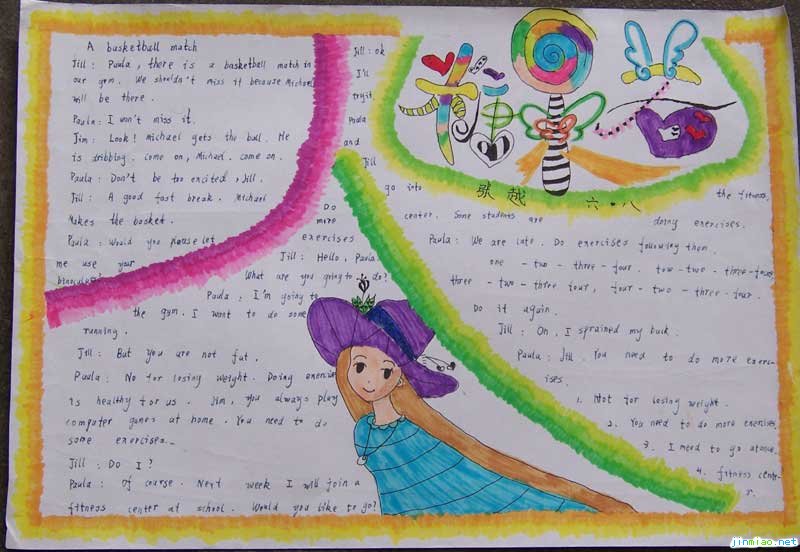 A basketball match
Jill: Paula, there is a basketball match in
our gym. We shouldn't miss it because Michael
will be there.
Paula: I won't miss it.
Jim: Look! michael gets the ball. He
is dribbling. come on, Michael. come on.
Paula: Don't be too excited, Jill.
Jill: A good fast break. Michael
Makes the basket.
Paula: Would you please let
me use your
binoculars?
Jill: Hello, Paula.
What are you going to do?
Paula: I'm going to
the gym. I want to do some
running.
Jill: But you are not fat.
Paula: No for losing weight. Doing exercise
is healthy for us. Jim, you always play
computer games at home. You need to do
some exercises.
Jill: Do I?
Paula: Of course. Next week I will join a
fitness center at school. Would you like to go?
Jill: ok
I'll
try it.
Paula
and
Jill
go into
the fitness
center. Some students are
doing exercises.
Do
more
exercises
Paula: We are late. Do exercises following them.
one - two - three - four. tow - two - three - four,
three - two - three four, four - two - three - four.
Do it again.
Jill: Oh, I sprained my back.
Paula: Jill. You need to do more exerc-
ises.
1. Not for losing weight.
2. You need to do more exercises
3. I need to go at once.
4. fitness cente-
r.
张越 六.八
jinmiao.net